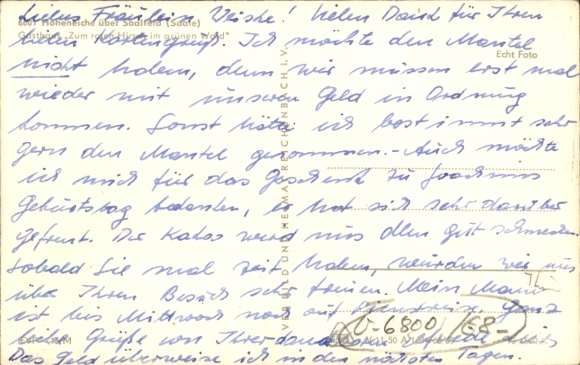 Liebes Fräulein Weiske! Vielen Dank für Ihren
6801 Hoheneiche über Saalfeld (Saale)
Gasthof „Zum roten Hirsch im grünen Wald"
lieben Kartengruß. Ich möchte den Mantel
Echt Foto
nicht haben, denn wir müssen erst mal
wieder mit unserem Geld in Ordnung
kommen. Sonst hätte ich bestimmt sehr
gern den Mantel genommen. - Auch möchte
ich mich für das Geschenk zu Joachims
Geburtstag bedanken, er hat sich sehr darüber
gefreut. Der Kakao wird uns allen gut schmecken.
Sobald Sie mal Zeit haben, würden wir uns
über Ihren Besuch sehr freuen. Mein Mann
ist bis Mittwoch noch auf Dienstreise. Ganz
liebe Grüße von Ihrer
V-6800/68-
Das Geld überweise ich in den nächsten Tagen.
VERBILD UNGER MAN REICHENBACH I. V.